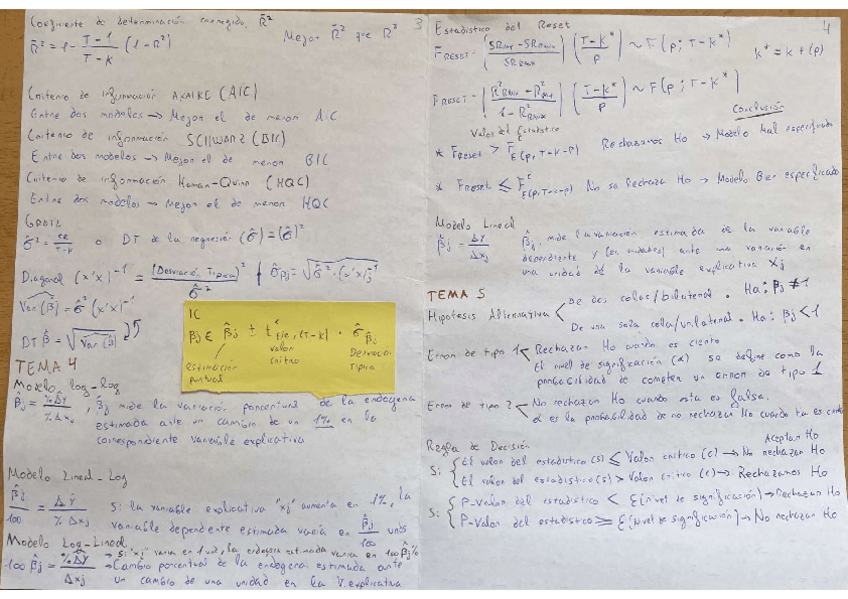 Coeficiente de determinación corregido R̄² 3
R̄² = 1 - T-1/T-K (1-R²) Mejor R̄² que R²
Criterio de información AKAIKE (AIC)
Entre dos modelos → Mejor el de menor AIC
Criterio de información SCHWARZ (BIC)
Entre dos modelos → Mejor el de menor BIC
Criterio de información Hannan-Quinn (HQC)
Entre dos modelos → Mejor el de menor HQC
σ̂² = /T-K o DT de la regresión (σ̂) = (σ̂)²
Diagonal (x'x)⁻¹ = (Desviación Típica)²/σ̂² σ̂β̂j = √σ̂² · (x'x)⁻¹
Var(β̂) = σ̂² (x'x)⁻¹
DT β̂ = √Var(β̂)
IC
βj ∈ β̂j ± t ε/2, (T-K) · σ̂β̂j
estimación puntual
valor crítico
Desviación típica
TEMA 4
Modelo log-log
β̂j = %ΔŶ/%ΔXj, β̂j mide la variación porcentual de la endógena
estimada ante un cambio de un 1% en la
correspondiente variable explicativa
Modelo Lineal-Log
β̂j/100 = ΔŶ/%Δxj Si la variable explicativa "xj" aumenta en 1%, la
variable dependiente estimada varía en β̂j/100 unds
Modelo Log-Lineal
100 β̂j = %ΔŶ/Δxj → Si "xj" varía en 1 ud, la endógena estimada varía en 100β̂j%
→ Cambio porcentual de la endógena estimada ante
un cambio de una unidad en la V. explicativa
Estadístico del Reset 4
F RESET = (SR - SR/SR) (T-K*/P) ~ F(p; T-K*) K* = K + (p)
F RESET = (R² - R²/1-R²) (T-K*/P) ~ F(p; T-K*)
Valor del Estadístico Conclusión
* F reset > F ε(p, T-K-P) Rechazamos Ho → Modelo Mal especificado
* F reset ≤ F ε(p, T-K-p) No se Rechaza Ho → Modelo Bien especificado
Modelo Lineal
β̂j = ΔŶ/Δxj β̂j, mide la variación estimada de la variable
dependiente y (en unidades) ante una variación en
una unidad de la variable explicativa Xj
TEMA 5
Hipótesis Alternativa De dos colas/bilateral. Ha: βj ≠ 1
De una sola cola/unilateral. Ha: βj < 1
Error de tipo 1 Rechazar Ho cuando es cierto
El nivel de significación (α) se define como la
probabilidad de cometer un error de tipo 1
Error de tipo 2 No rechazar Ho cuando esta es falsa.
α es la probabilidad de no rechazar Ho cuando
Regla de Decisión Aceptar Ho
Si El valor del estadístico (s) ≤ Valor crítico (c) → No rechazar Ho
El valor del estadístico (s) > Valor crítico (c) → Rechazamos Ho
Si P-Valor del estadístico < ε (nivel de significación) → Rechazar Ho
P-Valor del estadístico ≥ ε (nivel de significación) → No rechazar Ho